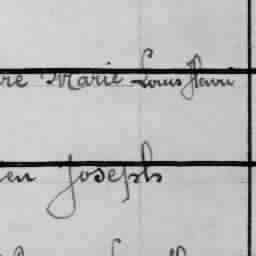 re Marie Louis Henri
en Joseph